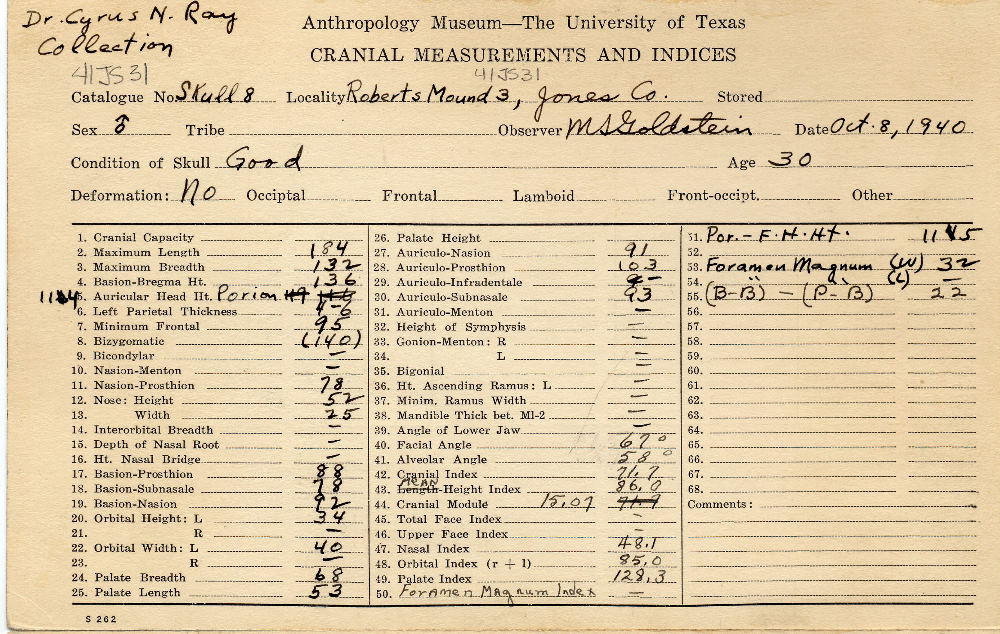 Dr. Cyrus N. Ray
Collection
41JS31
Anthropology Museum—The University of Texas
CRANIAL MEASUREMENTS AND INDICES
41JS31
Catalogue No. Skull 8 Locality Roberts Mound 3, Jones Co. Stored
Sex ♂ Tribe Observer M S Goldstein Date Oct. 8, 1940
Condition of Skull Good Age 30
Deformation: No Occiptal Frontal Lamboid Front-occipt. Other
1. Cranial Capacity
2. Maximum Length 184
3. Maximum Breadth 132
4. Basion-Bregma Ht. 136
5. Auricular Head Ht. Porion
6. Left Parietal Thickness 4-6
7. Minimum Frontal 95
8. Bizygomatic (140)
9. Bicondylar —
10. Nasion-Menton —
11. Nasion-Prosthion 78
12. Nose: Height 52
13. Width 25
14. Interorbital Breadth —
15. Depth of Nasal Root —
16. Ht. Nasal Bridge —
17. Basion-Prosthion 88
18. Basion-Subnasale 78
19. Basion-Nasion 92
20. Orbital Height: L 34
21. R —
22. Orbital Width: L 40
23. R —
24. Palate Breadth 68
25. Palate Length 53
26. Palate Height
27. Auriculo-Nasion 91
28. Auriculo-Prosthion 103
29. Auriculo-Infradentale —
30. Auriculo-Subnasale 93
31. Auriculo-Menton —
32. Height of Symphysis —
33. Gonion-Menton: R —
34. L —
35. Bigonial —
36. Ht. Ascending Ramus: L —
37. Minim. Ramus Width —
38. Mandible Thick bet. Ml-2 —
39. Angle of Lower Jaw —
40. Facial Angle 67°
41. Alveolar Angle 58°
42. Cranial Index 71.7
43. Mean Length-Height Index 86.0
44. Cranial Module 15.07
45. Total Face Index —
46. Upper Face Index —
47. Nasal Index 48.1
48. Orbital Index (r + l) 85.0
49. Palate Index 128.3
50. Foramen Magnum Index —
51. Por. - F.H. Ht.
52.
53. Foramen Magnum (W) 32
54. (L) —
55. (B-B) — (P-B) 22
56.
57.
58.
59.
60.
61.
62.
63.
64.
65.
66.
67.
68.
Comments:
S 262